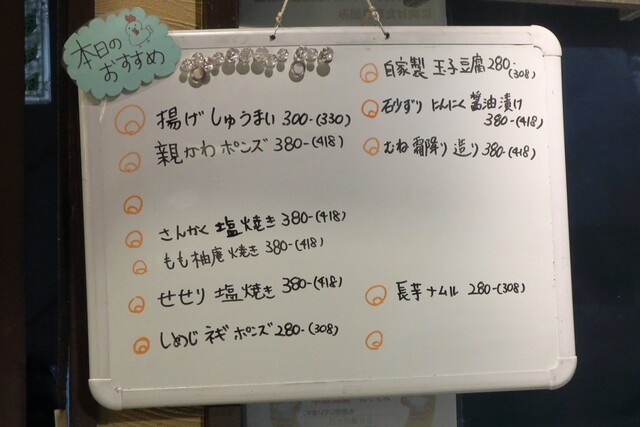 本日の
おすすめ
揚げしゅうまい 300-(330)
親かわポンズ 380-(418)
さんかく 塩焼き 380-(418)
もも柚庵焼き 380-(418)
せせり 塩焼き 380-(418)
しめじ ネギ ポンズ 280-(308)
自家製 玉子豆腐 280-(308)
砂ずり にんにく 醤油漬け
380-(418)
むね霜降り造り 380-(418)
長芋ナムル 280-(308)